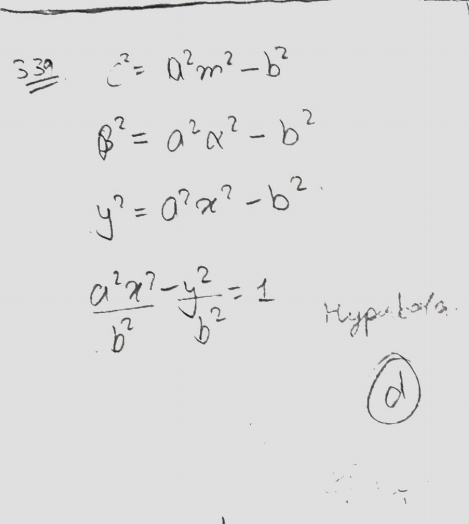 339. c² = a²m² - b²
β² = a²α² - b²
y² = a²x² - b².
a²x²/b² - y²/b² = 1
Hyperbola.
d